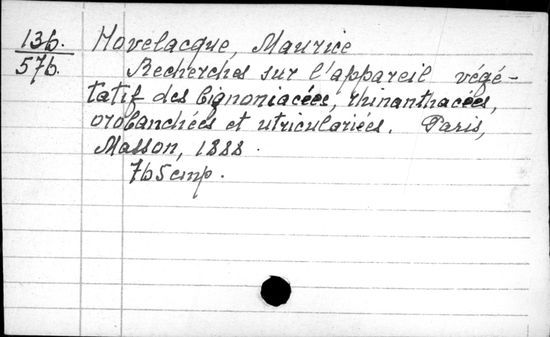 136. Hovelacque, Maurice
576. Recherches sur l'appareil végé-
tatif des bignoniacées, rhinanthacées,
orobanchées et utriculariées. Paris,
Masson, 1888.
765 стр.